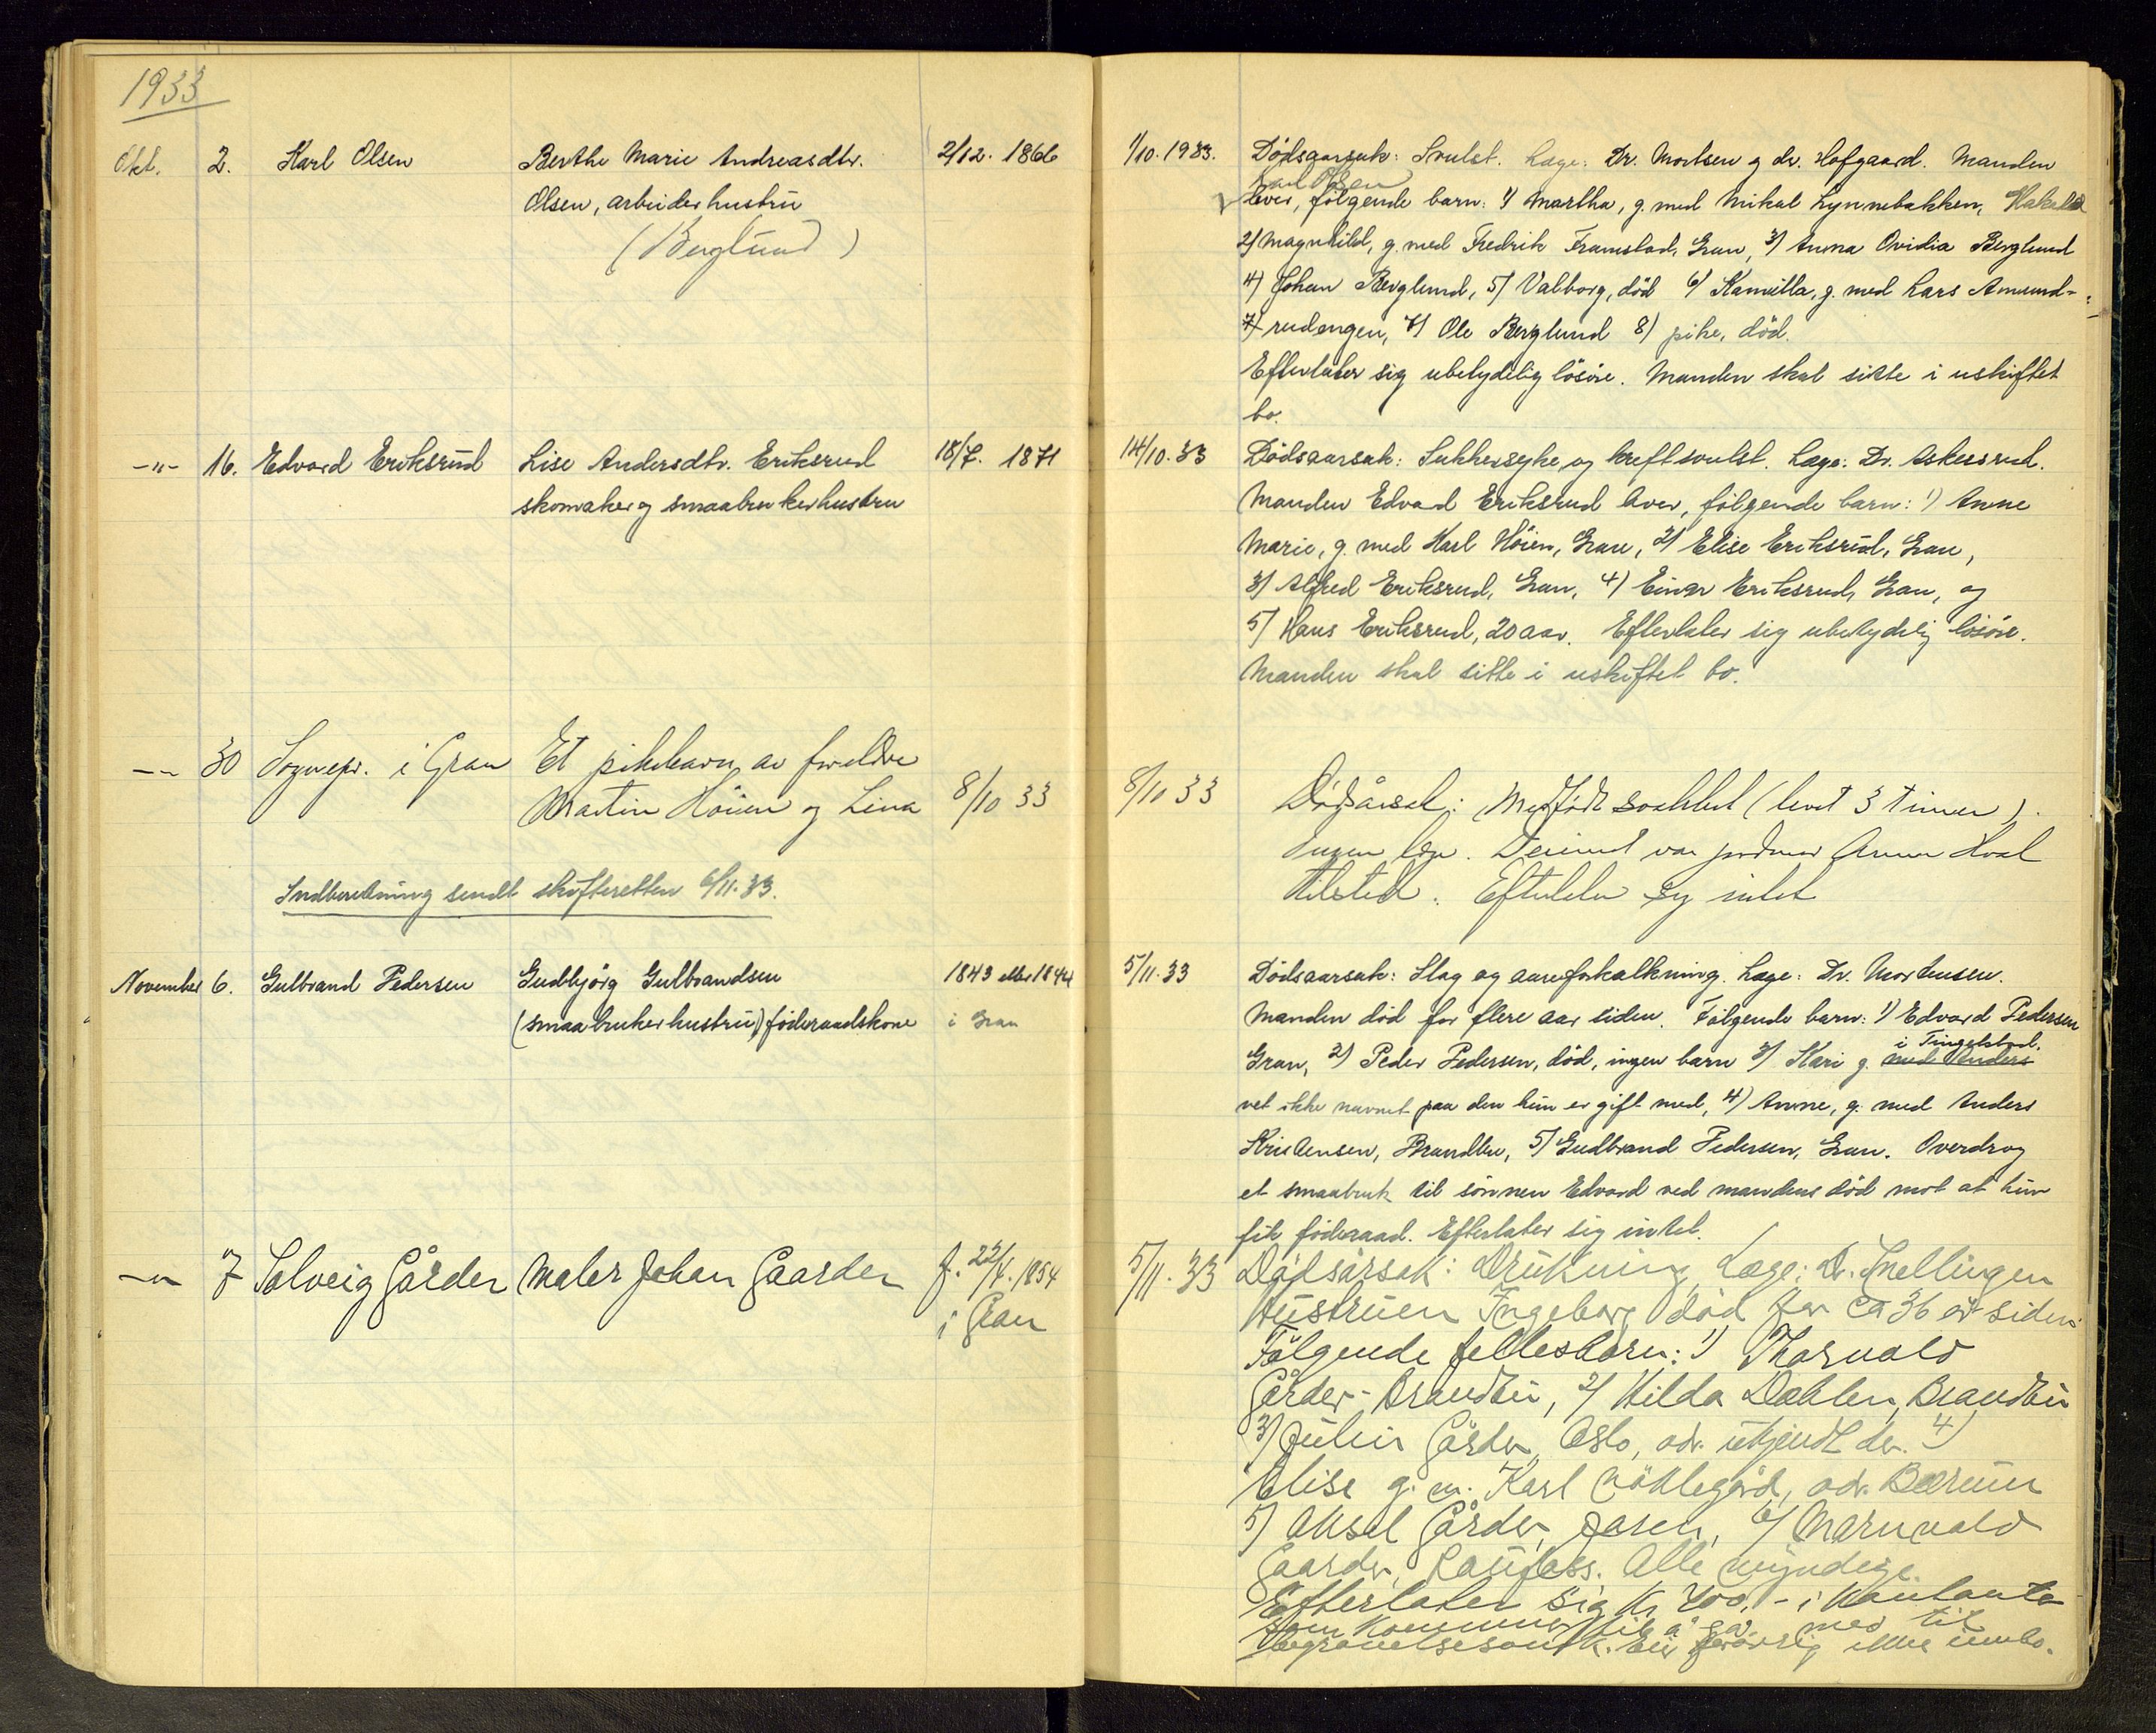 1933
Okt. 2. Karl Olsen Berthe Marie Andreasdtr. 2/12. 1866 1/10. 1933. Dødsaarsak: Svulst. Læge: Dr. Mortsen og dr. Hofgaard. Manden
Karl Olsen
Olsen, arbeiderhustru lever, følgende barn: 1) Martha, g. med Mikal Lynnebakken, Hakadal
(Berglund) 2) Magnhild, g. med Fredrik Framstad, Gran, 3) Anna Ovidia Berglund
4) Johan Berglund, 5) Valborg, död 6) Kamilla, g. med Lars Amund-
7) rudengen, 7) Ole Berglund 8) pike, död.
Efterlater sig ubetydelig lösöre. Manden skal sitte i uskiftet
bo.
-"- 16. Edvard Eriksrud Lise Andersdtr. Eriksrud 18/7. 1871 14/10. 33 Dödsaarsak: Sukkersyke og kreftsvulst. Læge: Dr. Askersrud.
skomaker og smaabrukerhustru Manden Edvard Eriksrud lever, følgende barn: 1) Anne
Marie, g. med Karl Höien, Gran, 2) Elise Eriksrud, Gran,
3) Alfred Eriksrud, Gran, 4) Einar Eriksrud, Gran, og
5) Hans Eriksrud, 20 aar. Efterlater sig ubetydelig lösöre.
Manden skal sitte i uskiftet bo.
-"- 30 Sognepr. i Gran Et pikebarn av foreldre
Martin Höien og Lina 8/10 33 8/10 33 Dödsårsak: Medfödt svakhet (levet 3 timer).
Ingen læge. Derimot var jordmor Anna Hval
Indberetning sendt skifteretten 6/11. 33. tilsted. Efterlater sig intet
November 6. Gulbrand Pedersen Gudbjörg Gulbrandsen 1843 eller 1844 5/11. 33 Dödsaarsak: Slag og aareforkalkning. Læge: Dr. Mortensen.
(smaabrukerhustru) föderaadskone i Gran Manden död for flere aar siden. Fölgende barn: 1) Edvard Pedersen
i Tingelstad.
Gran, 2) Peder Pedersen, död, ingen barn 3) Kari g. med Anders
vet ikke navnet paa den hun er gift med, 4) Anne, g. med Anders
Kristensen, Brandbu, 5) Gudbrand Pedersen, Gran. Overdrog
et smaabruk til sönnen Edvard ved mandens död mot at hun
fik föderaad. Efterlater sig intet.
-"- 7 Solveig Gårder Maler Johan Gaarder f. 22/4. 1854 5/11. 33 Dødsårsak: Drukning, Læge: Dr. Snellingen
i Gran Hustruen Ingeborg död for ca 36 år siden.
Fölgende fellesbarn: 1) Thorvald
Gårder, Brandbu, 2) Hilda Dæhlen, Brandbu
3) Julius Gårder, Oslo, adr. ukjendt der. 4)
Elise g. m. Karl Vöhlegård, adr. Bærum
5) Aksel Gårder, Jaren, 6)
Gaarder, Raufoss. Alle myndige.
Efterlater sig kr 400,- i kontante
som kommer til å gå med til
begravelsesomk. Eier forövrig ikke innbo.